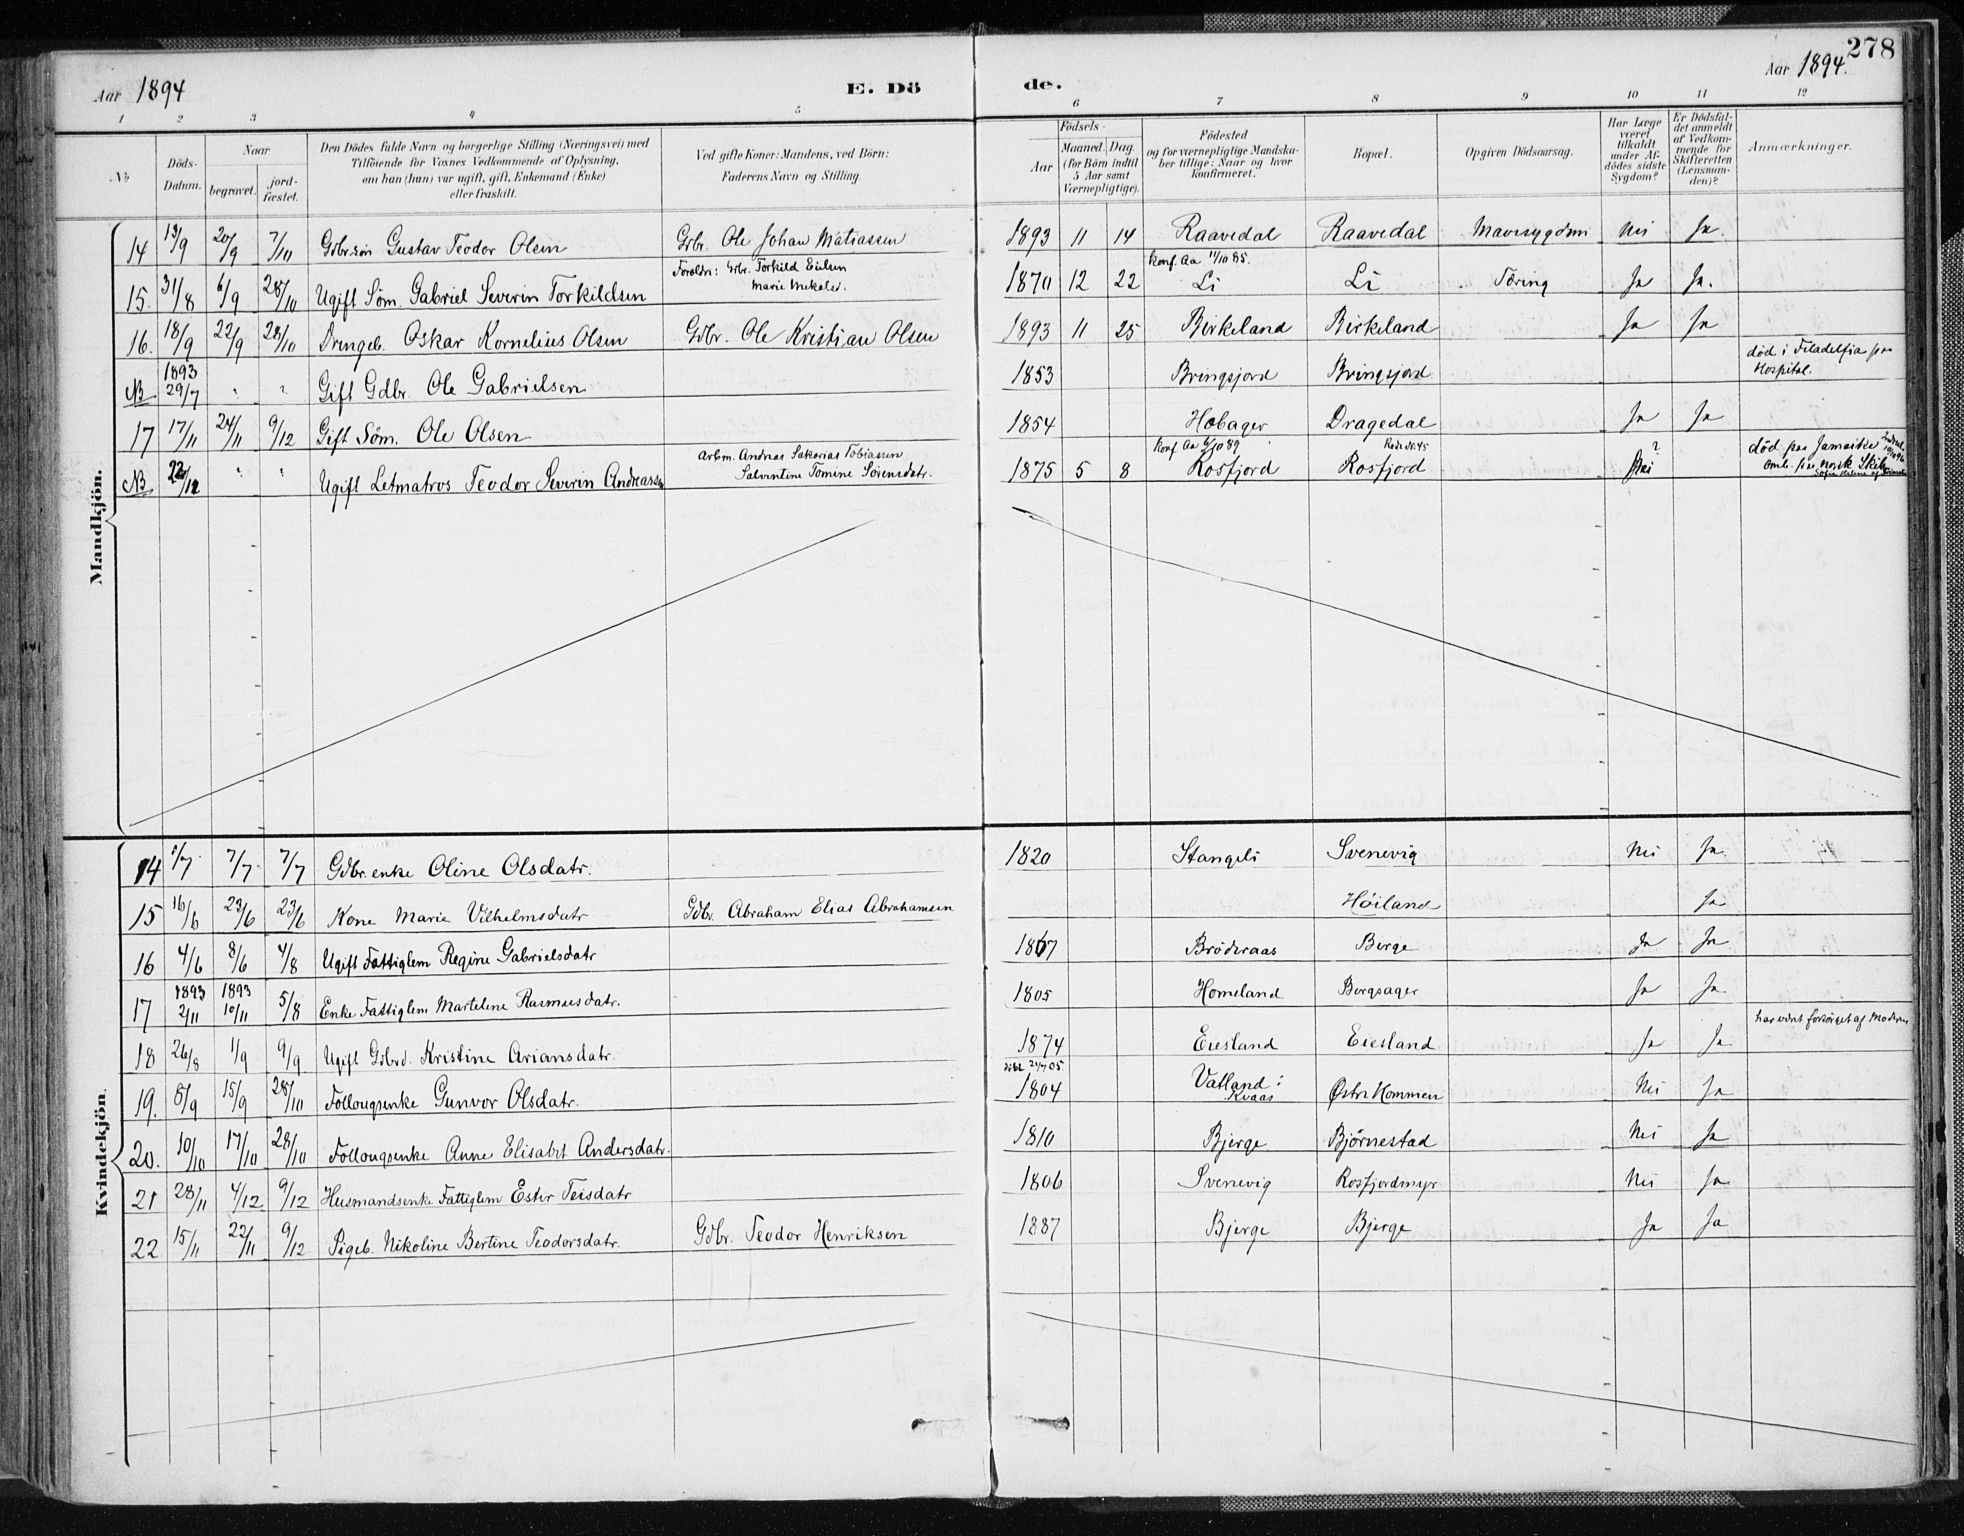 278
Aar 1894 E. Dö de. Aar 1894.
1 2 3 4 5 6 7 8 9 10 11 12
No Döds-Datum. Naar begravet. jord-fæstet. Den Dödes fulde Navn og borgerlige Stilling (Næringsvei) med Tilföiende for Voxnes Vedkommende af Oplysning, om han (hun) var ugift, gift, Enkemand (Enke) eller fraskilt. Ved gifte Koner: Mandens, ved Börn: Faderens Navn og Stilling. Födsels- Aar Maaned. Dag. (for Börn indtil 5 Aar samt Værnepligtige). Födested og for værnepligtige Mandskaber tillige: Naar og hvor Konfirmeret. Bopæl. Opgiven Dödsaarsag. Har Læge været tilkaldt under Afdödes sidste Sygdom? Er Dödsfaldet anmeldt af Vedkommende for Skifteretten (Lensmanden)? Anmærkninger.
Mandkjön.
14 13/9 20/9 7/10 Gdbr.sön Gustav Teodor Olsen Gdbr. Ole Johan Matiassen 1893 11 14 Raavedal Raavedal Mavesygdom Nei Ja.
Foreldr: Gdbr. Torkild Eilsen konf. Aa 11/10 85.
15. 31/8 6/9 28/10 Ugift Söm. Gabriel Severin Torkildsen Marie 1870 12 22 Li Li Tæring Ja Ja.
16. 18/9 22/9 28/10 Drengeb. Oskar Kornelius Olsen Gdbr. Ole Kristian Olsen 1893 11 25 Birkeland Birkeland Ja Ja
NB 1893 29/7 " " Gift Gdbr. Ole Gabrielsen 1853 Bringsjord Bringsjord död i Filadelfia paa Hospital.
17 17/11 24/11 9/12 Gift Söm. Ole Olsen 1854 Habager Dragedal Ja Ja
Arbm. Andreas Sakarias Tobiassen Konf Aa 6/10 89 ? död paa Jamaika
NB 22/12 " " Ugift Letmatros Teodor Severin Andreassen Salventine Tomine Sörensdatr. 1875 5 8 Rosfjord Rosfjord Nei norsk Skib
Kvindekjön.
14 1/7 7/7 7/7 Gdbr.enke Oline Olsdatr. 1820 Stangeli Svenevig Nei Ja
15 16/6 23/6 23/6 Kone Marie Vilhelmsdatr Gdbr. Abraham Elias Abrahamsen Höiland Ja
16 4/6 8/6 4/8 Ugift Fattiglem Regine Gabrielsdatr 1867 Bröderaas Berge Ja Ja
17 1893 2/11 1893 10/11 5/8 Enke Fattiglem Martelene Rasmusdatr. 1805 Homeland Borgsager Ja Ja
har været forsörget af Moderen
18 26/8 1/9 9/9 Ugift Gdbrd. Kristine Ariansdatr. 1874 Eiesland Eiesland Ja Ja
19. 8/9 15/9 28/10 Follougsenke Gunvor Olsdatr. 1804 Vatland i Kvaas Østre Kommen Nei Ja
20. 10/10 17/10 28/10 Follougsenke Anne Elisabet Andersdatr. 1810 Bjerge Björnestad Nei Ja
21 28/11 4/12 9/12 Husmandsenke Fattiglem Ester Teisdatr 1806 Svenevig Rosfjordmyr Nei Ja
22 15/11 22/11 9/12 Pigeb. Nikoline Bertine Teodorsdatr. Gdbr. Teodor Henriksen 1887 Bjerge Bjerge Ja Ja